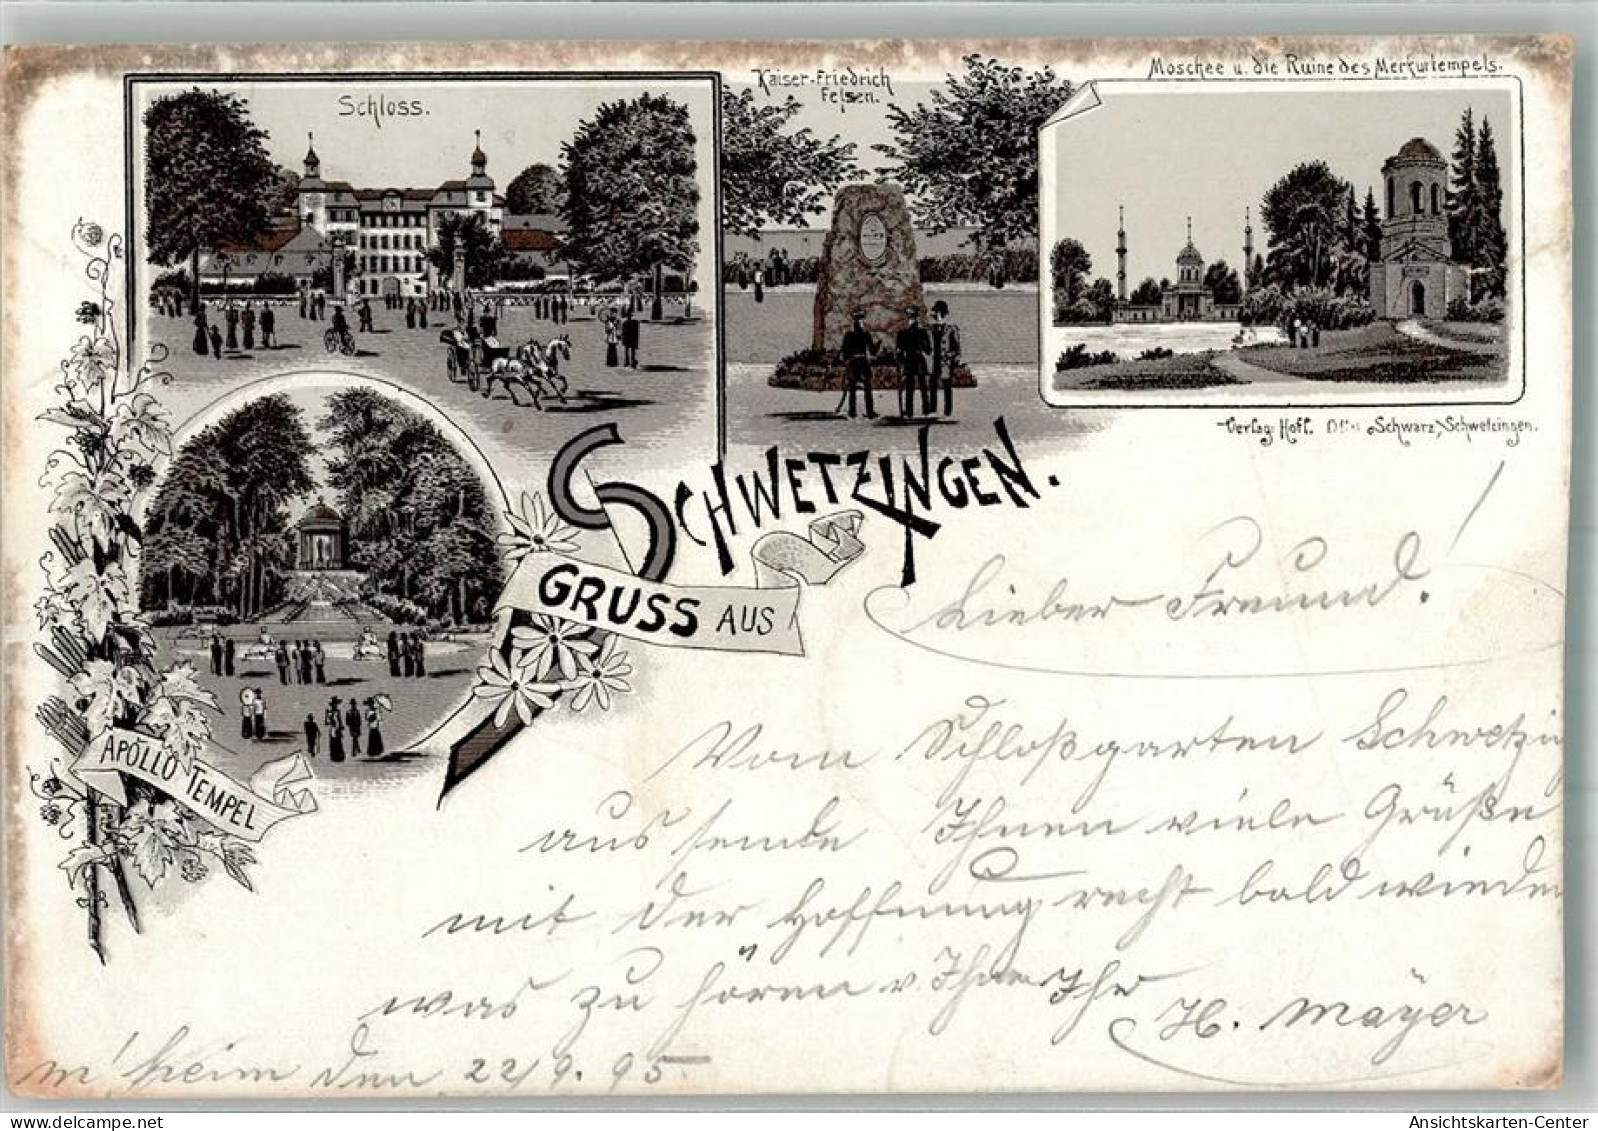 Schloss.
Kaiser-Friedrich
Felsen.
Moschee u. die Ruine des Merkurtempels.
Verlag: Hofl. Otto Schwarz, Schwetzingen.
SCHWETZINGEN.
GRUSS AUS
APOLLO TEMPEL
Lieber Freund!
Vom Schloßgarten Schwetzing
aus sende Ihnen viele Grüße
mit der Hoffnung recht bald wieder
was zu hören v. Ihnen Ihr
H. Mayer
M'heim den 22/9. 95
Ansichtskarten-Center